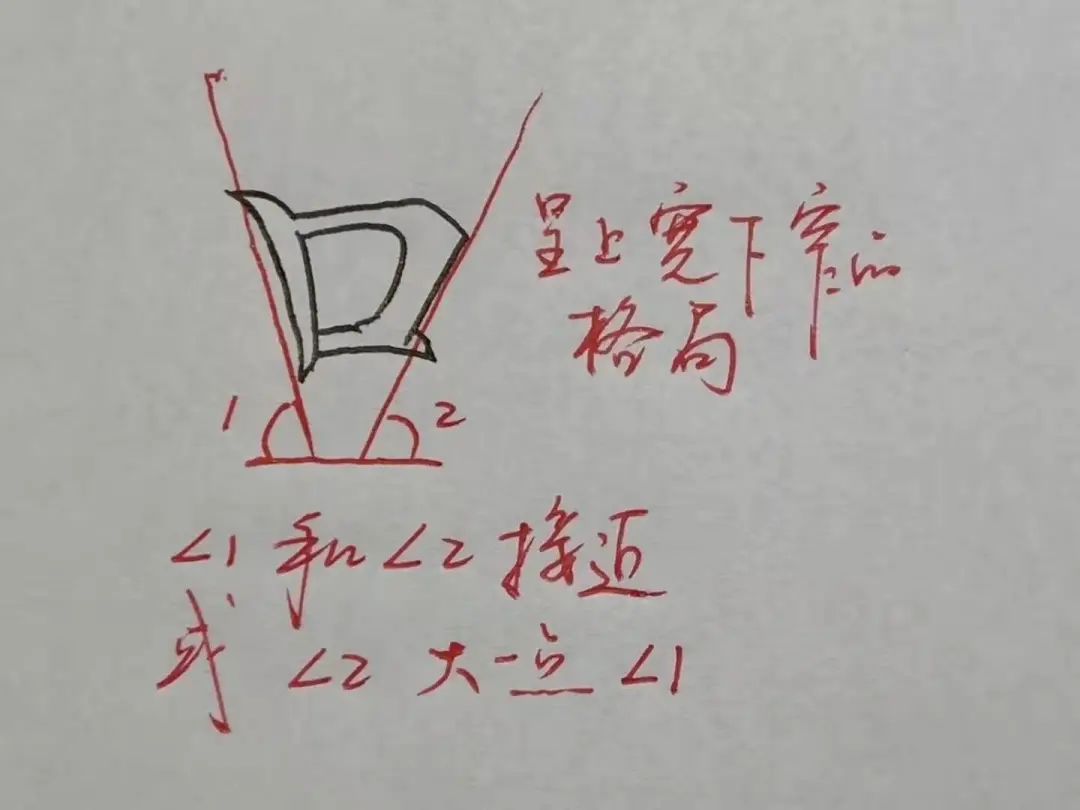 呈上宽下窄的
格局
1 2
∠1 和 ∠2 接近
或 ∠2 大一点 ∠1